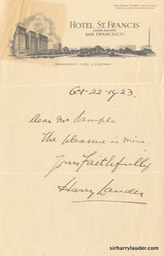 HOTEL ST. FRANCIS
UNION SQUARE
SAN FRANCISCO
MANAGEMENT, THOS. J. COLEMAN
Oct-22-1923.
Dear Mr Sample
The pleasure is mine,
Yours Faithfully
Harry Lauder
sirharrylauder.com